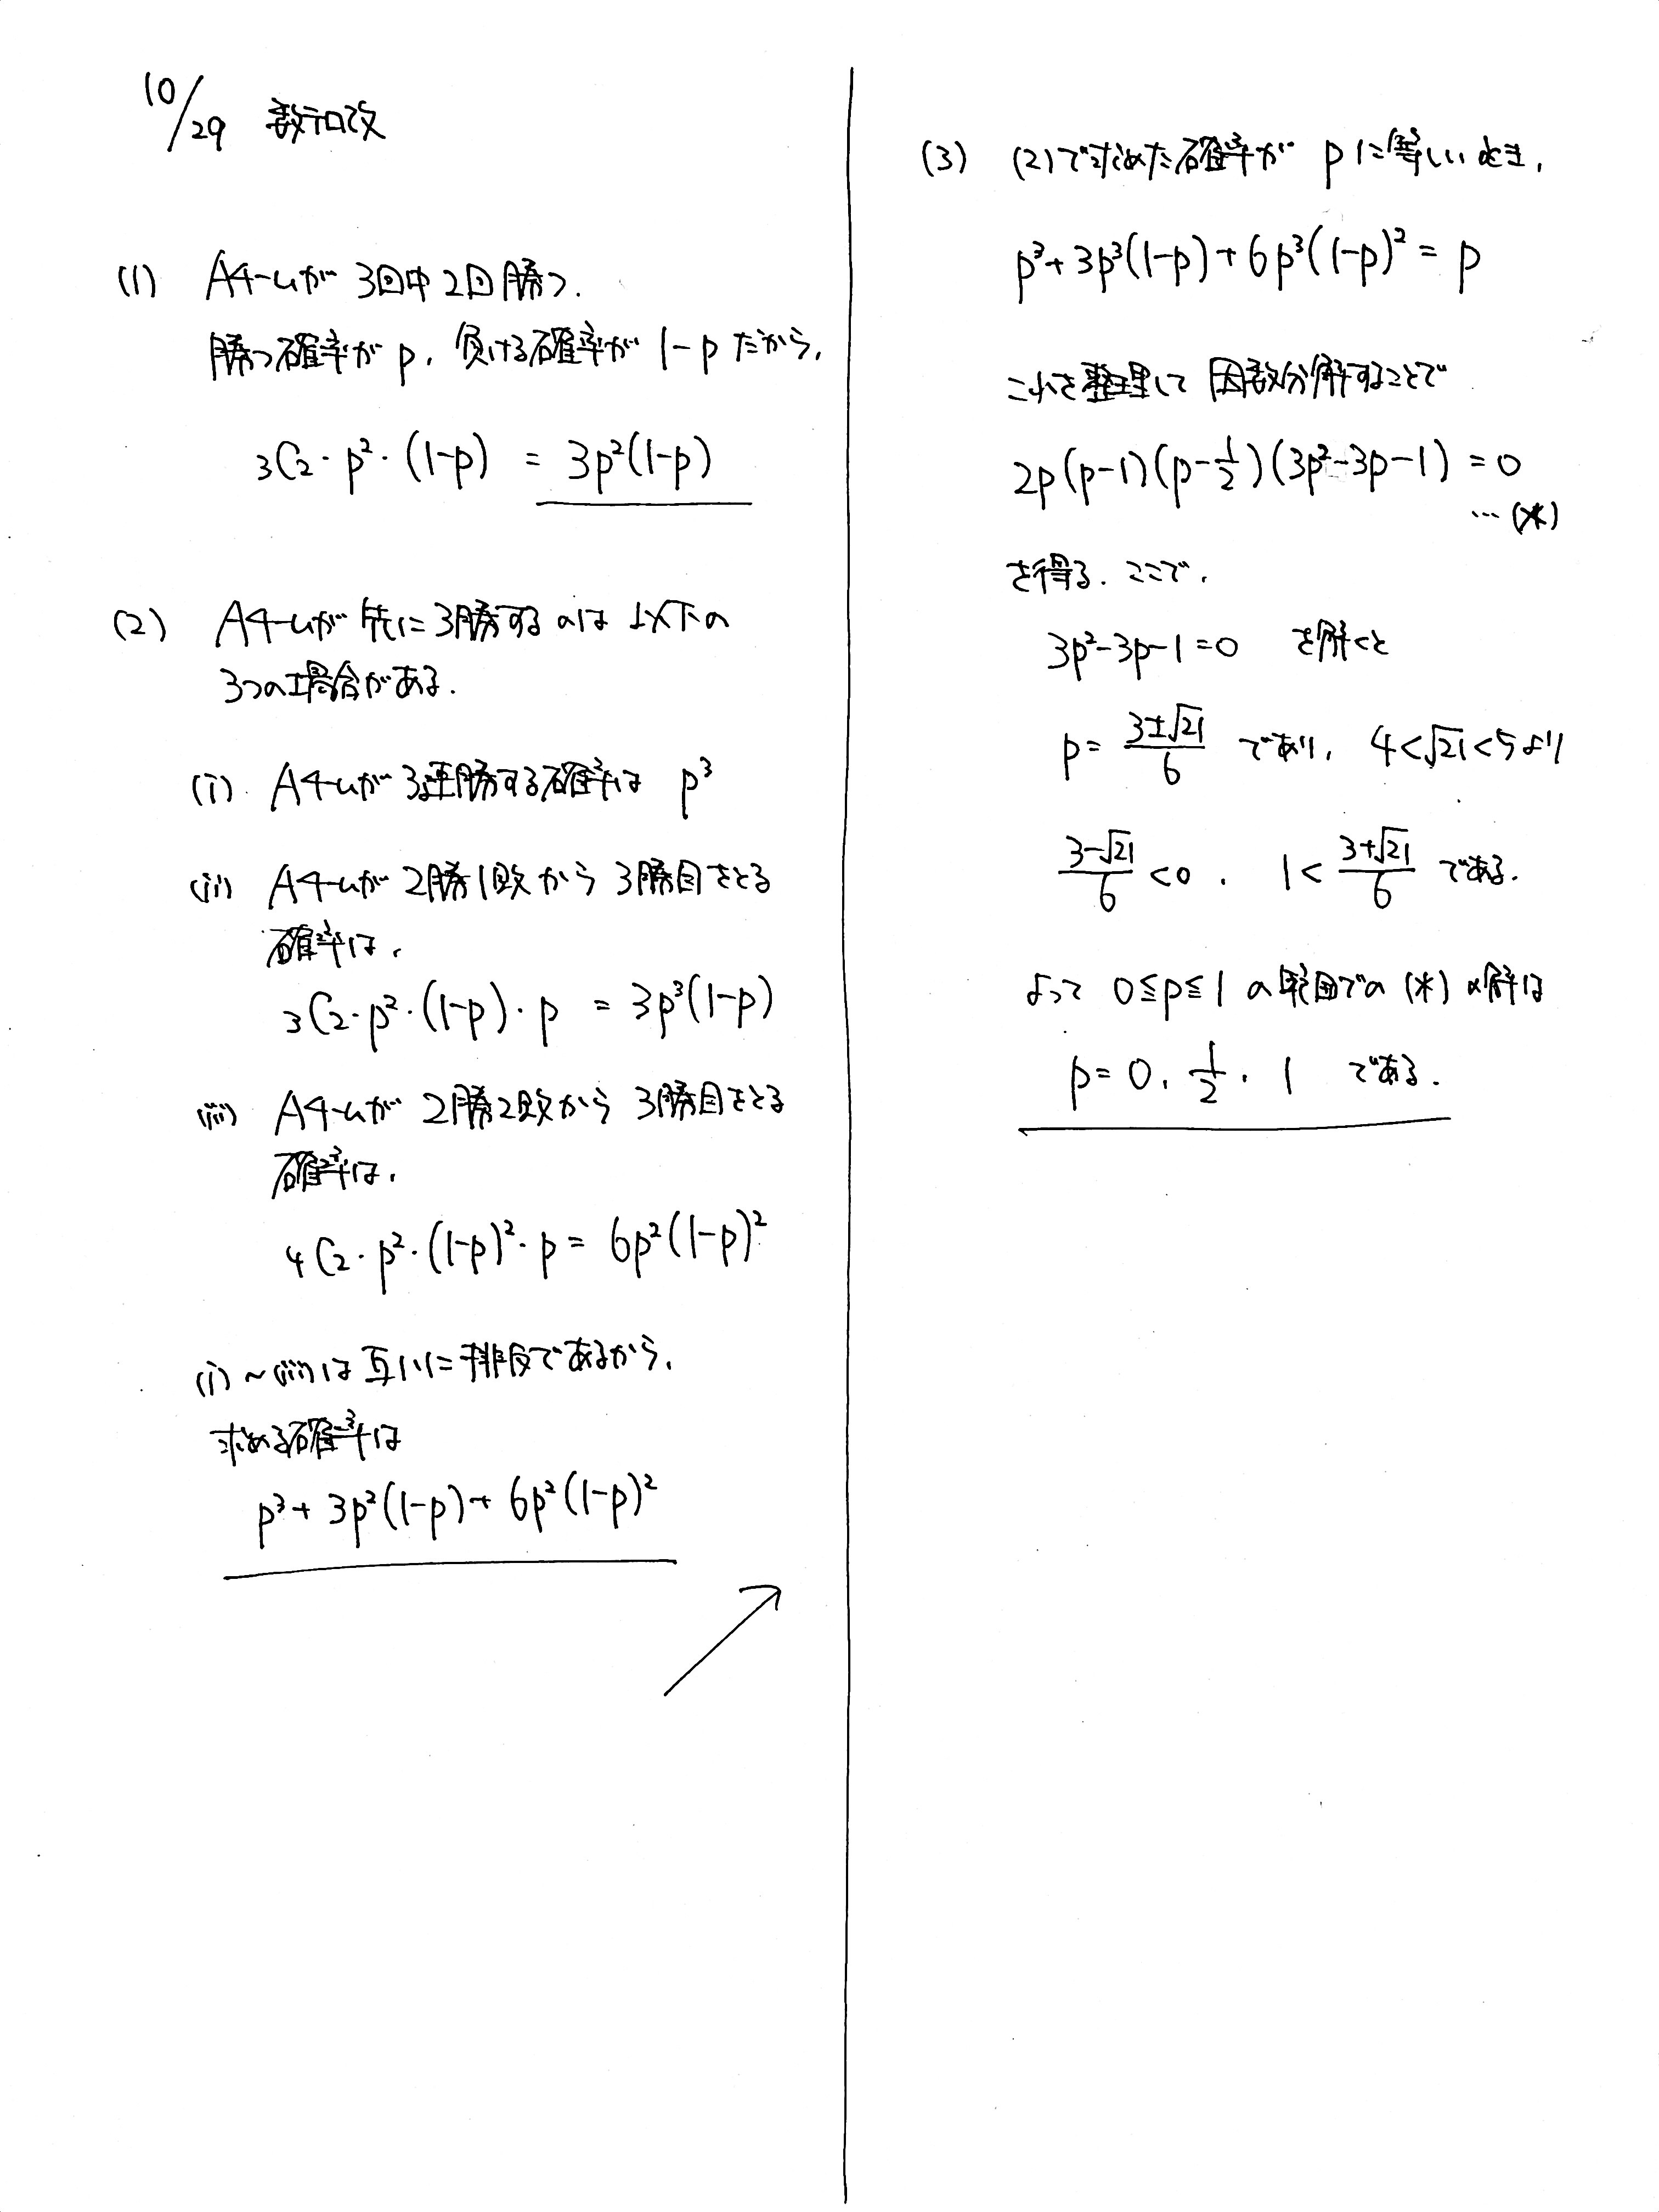 10/29 数テロ改
(1) Aチームが 3回中 2回 勝つ.
勝つ確率が p, 負ける確率が 1-p だから,
₃C₂・p²・(1-p) = 3p²(1-p)
(2) Aチームが 先に 3勝するのは 以下の
3つの場合がある.
(i) Aチームが 3連勝する確率は p³
(ii) Aチームが 2勝1敗から 3勝目をとる
確率は,
₃C₂・p²・(1-p)・p = 3p³(1-p)
(iii) Aチームが 2勝2敗から 3勝目をとる
確率は,
₄C₂・p²・(1-p)²・p = 6p²(1-p)²
(i)~(iii)は 互いに排反であるから,
求める確率は
p³+3p²(1-p)+6p²(1-p)²
(3) (2)で求めた確率が pに等しいとき,
p³+3p³(1-p)+6p³(1-p)²=p
これを整理して 因数分解することで
2p(p-1)(p-1/2)(3p²-3p-1)=0
…(*)
を得る. ここで,
3p²-3p-1=0 を解くと
p=(3±√21)/6 であり, 4<√21<5より
(3-√21)/6<0, 1<(3+√21)/6 である.
よって 0≦p≦1 の範囲での (*) の解は
p=0, 1/2, 1 である.